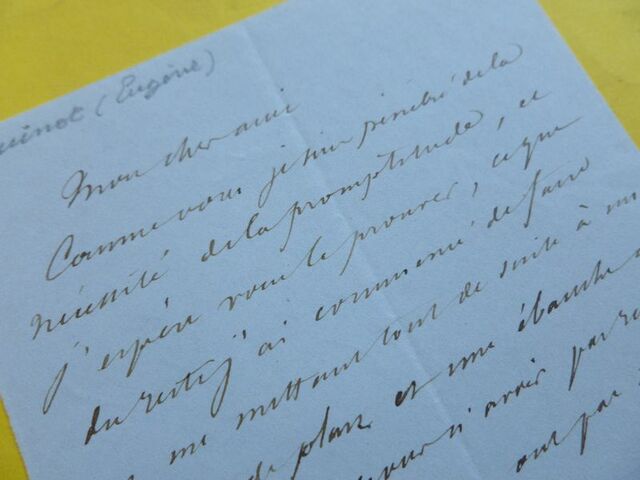 uinot (Eugène)
Mon cher ami
Comme vous je suis pénétré de la
nécessité de la promptitude, et
j'espère vous le prouver, ce que
du reste j'ai commencé de faire
me mettant tout de suite à
de plan et une ébauche
n'avoir pas
ont pas